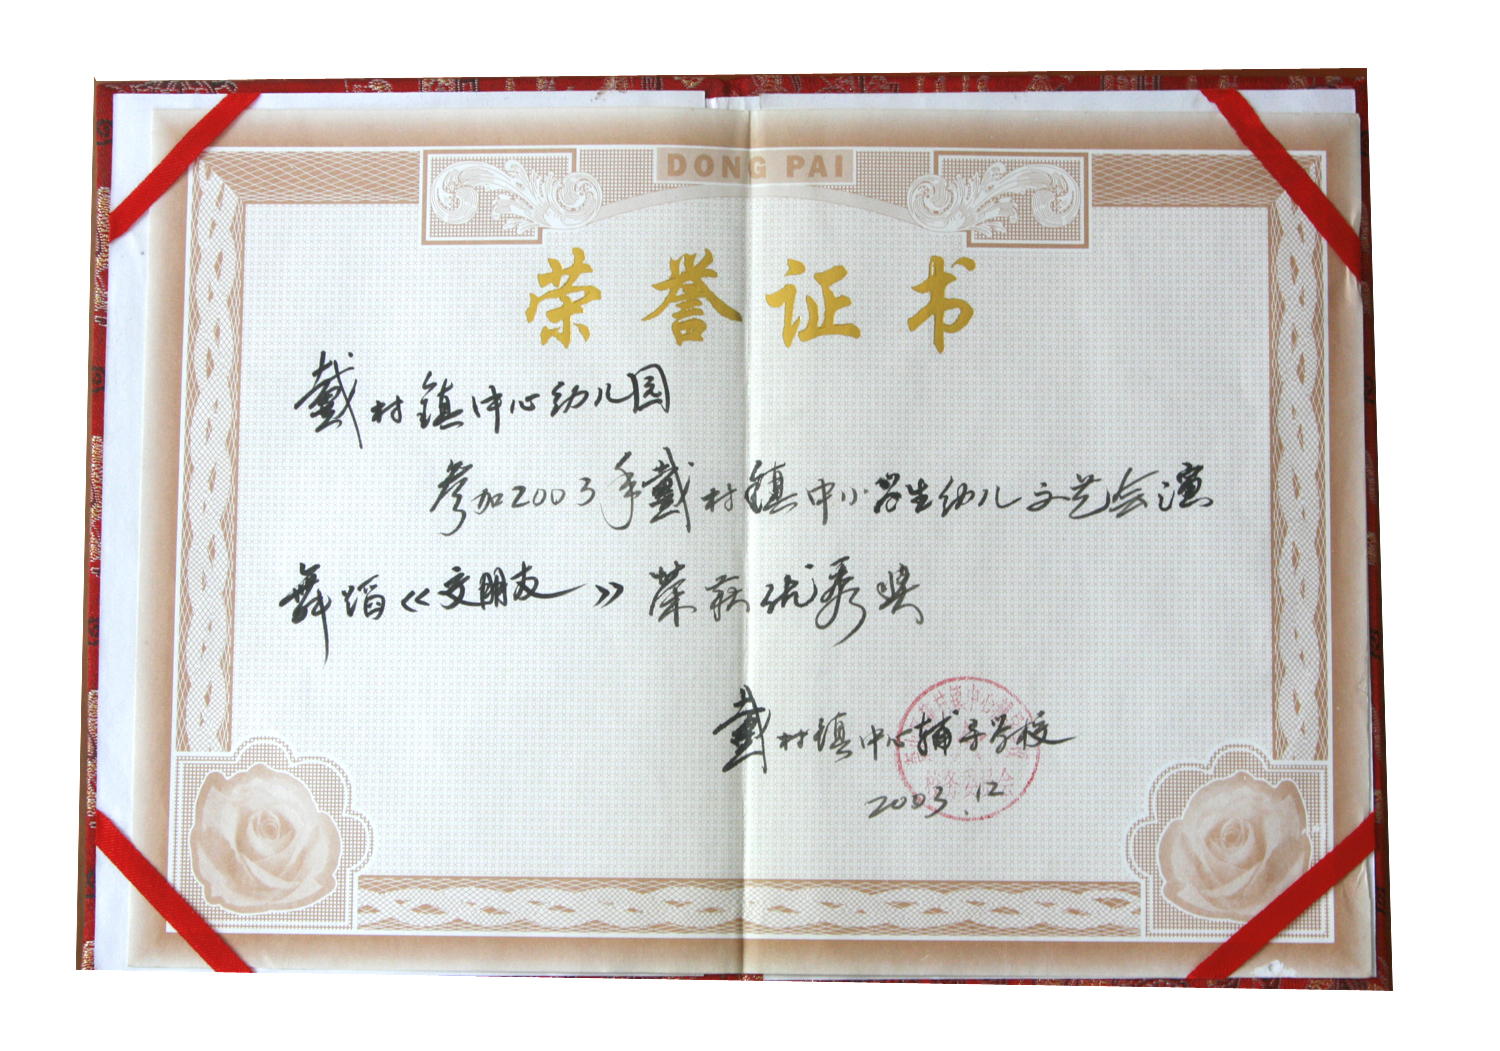 DONG PAI
荣誉证书
戴村镇中心幼儿园
参加2003年戴村镇中小学生幼儿文艺会演
舞蹈《交朋友》荣获优秀奖
戴村镇中心辅导学校
2003.12